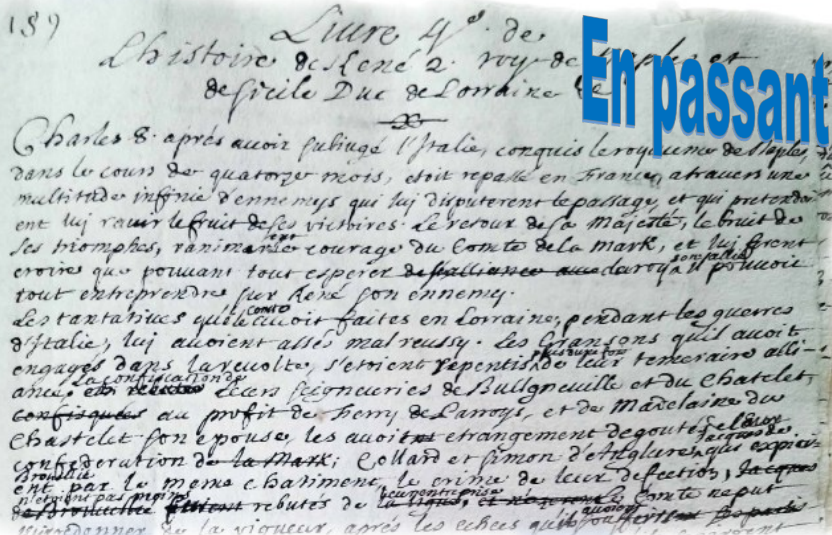 159
Livre 4e. de
Lhistoire de René 2. roy de Naples et
de Sicile Duc de Lorraine &c
En passant
Charles 8. aprés avoir subiugé l'Italie, conquis le royaume de Naples,
dans le cours de quatorze mois, etoit repassé en France, a travers une
multitude infinie d'ennemys qui lui disputerent le passage, et qui pretendoi
ent lui ravir le fruit de ses victoires. Le retour de sa Majesté, le bruit de
ses triomphes, ranimerent courage du Comte de la Mark, et lui firent
croire que pouvant tout esperer de son alliance avec le roy il pouvoit
tout entreprendre sur René son ennemy.
Les tantatives que le Comte avoit faites en Lorraine, pendant les guerres
d'Italie, lui avoient assés mal reussy. Les Gransons qu'il avoit
engagés dans la revolte, s'etoient repentis plus d'une fois de leur temeraire alli-
ance, la confiscation de leurs seigneuries de Bullgneville et du Chatelet,
confisquées au profit de Henry de Lannoys, et de Madelaine du
Chastelet son epouse, les avoit etrangement degoutés de leur
confederation de la Mark; Collard et Simon d'Anglure, que expioi-
ent par le meme chatiment, le crime de leur defection, Jacques
n'etoient pas moins rebutés de la ligue, Comte ne put
de la vigueur, aprés les echecs qu'ils